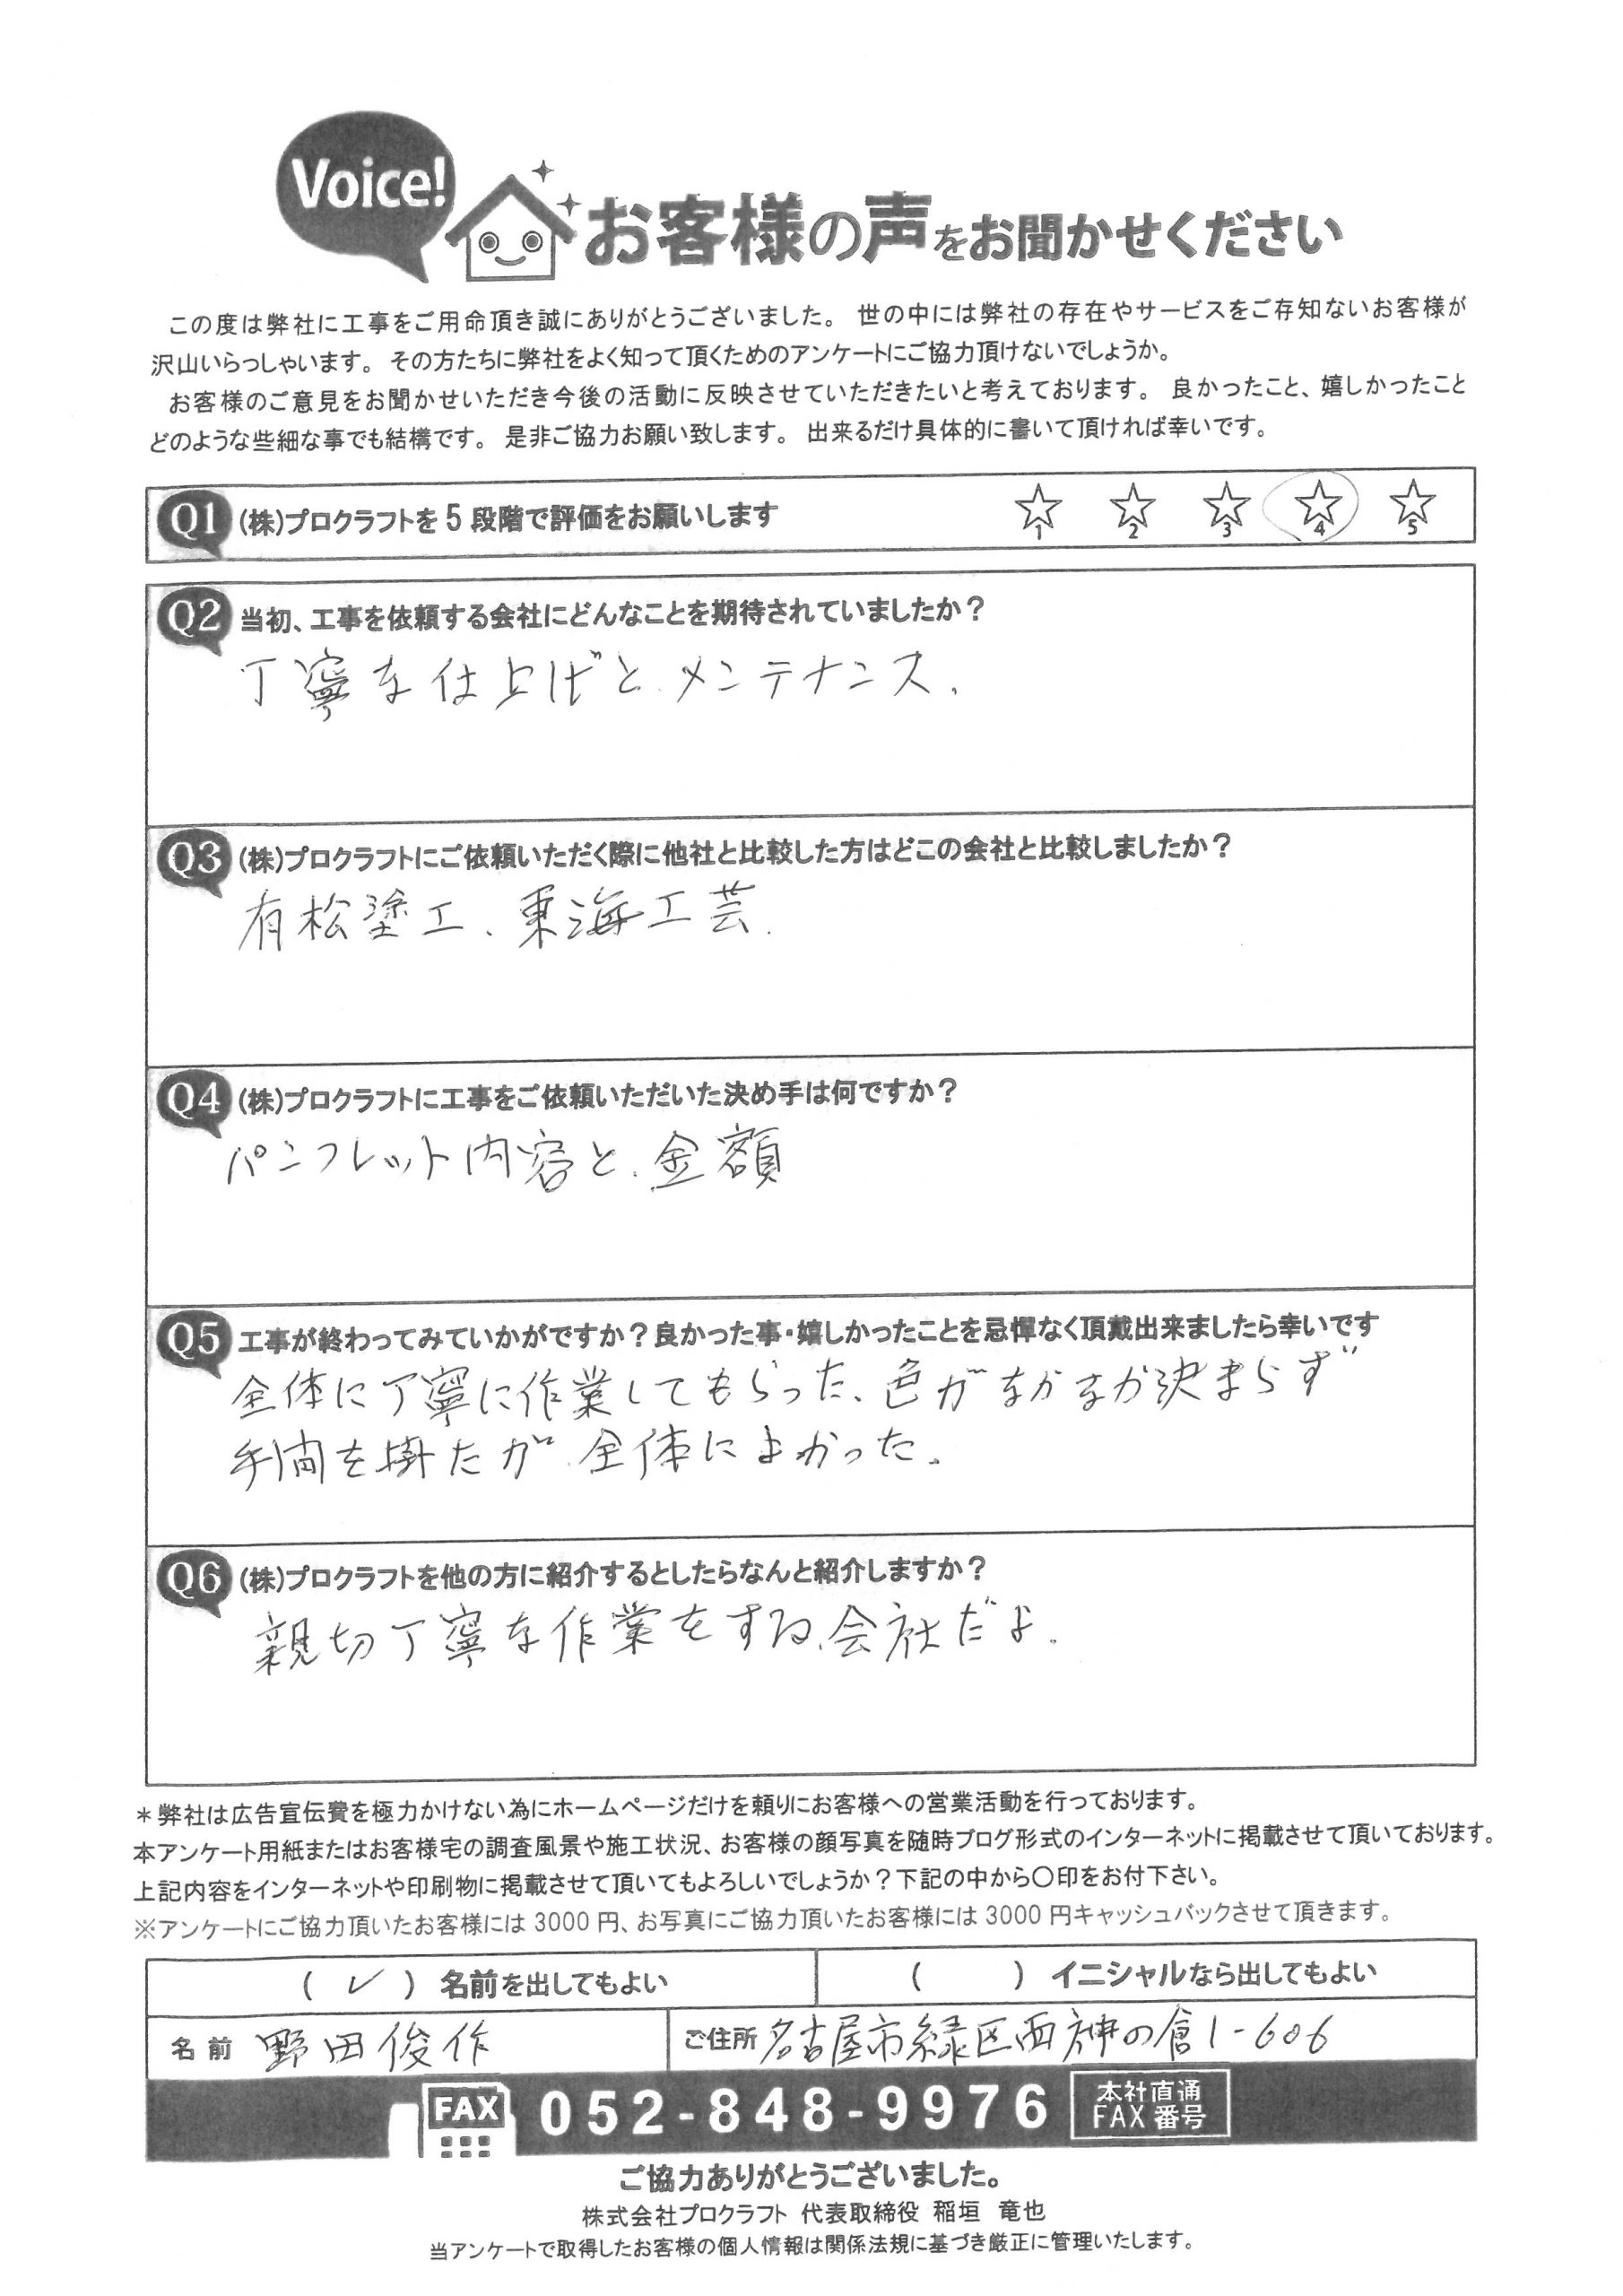 Voice!
お客様の声をお聞かせください
この度は弊社に工事をご用命頂き誠にありがとうございました。 世の中には弊社の存在やサービスをご存知ないお客様が
沢山いらっしゃいます。 その方たちに弊社をよく知って頂くためのアンケートにご協力頂けないでしょうか。
お客様のご意見をお聞かせいただき今後の活動に反映させていただきたいと考えております。 良かったこと、嬉しかったこと
どのような些細な事でも結構です。 是非ご協力お願い致します。 出来るだけ具体的に書いて頂ければ幸いです。
Q1 (株)プロクラフトを5段階で評価をお願いします ☆1 ☆2 ☆3 ☆4 ☆5
Q2 当初、工事を依頼する会社にどんなことを期待されていましたか?
丁寧な仕上げと、メンテナンス、
Q3 (株)プロクラフトにご依頼いただく際に他社と比較した方はどこの会社と比較しましたか?
有松塗工、東海工芸、
Q4 (株)プロクラフトに工事をご依頼いただいた決め手は何ですか?
パンフレット内容と、金額
Q5 工事が終わってみていかがですか?良かった事・嬉しかったことを忌憚なく頂戴出来ましたら幸いです
全体に丁寧に作業してもらった、色がなかなか決まらず
手間を掛たが、全体によかった。
Q6 (株)プロクラフトを他の方に紹介するとしたらなんと紹介しますか?
親切丁寧な作業をする、会社だよ、
＊弊社は広告宣伝費を極力かけない為にホームページだけを頼りにお客様への営業活動を行っております。
本アンケート用紙またはお客様宅の調査風景や施工状況、お客様の顔写真を随時ブログ形式のインターネットに掲載させて頂いております。
上記内容をインターネットや印刷物に掲載させて頂いてもよろしいでしょうか?下記の中から〇印をお付下さい。
※アンケートにご協力頂いたお客様には3000円、お写真にご協力頂いたお客様には3000円キャッシュバックさせて頂きます。
( ✓ ) 名前を出してもよい ( ) イニシャルなら出してもよい
名前 野田俊作 ご住所 名古屋市緑区西神の倉1-606
FAX 052-848-9976 本社直通
FAX番号
ご協力ありがとうございました。
株式会社プロクラフト 代表取締役 稲垣 竜也
当アンケートで取得したお客様の個人情報は関係法規に基づき厳正に管理いたします。